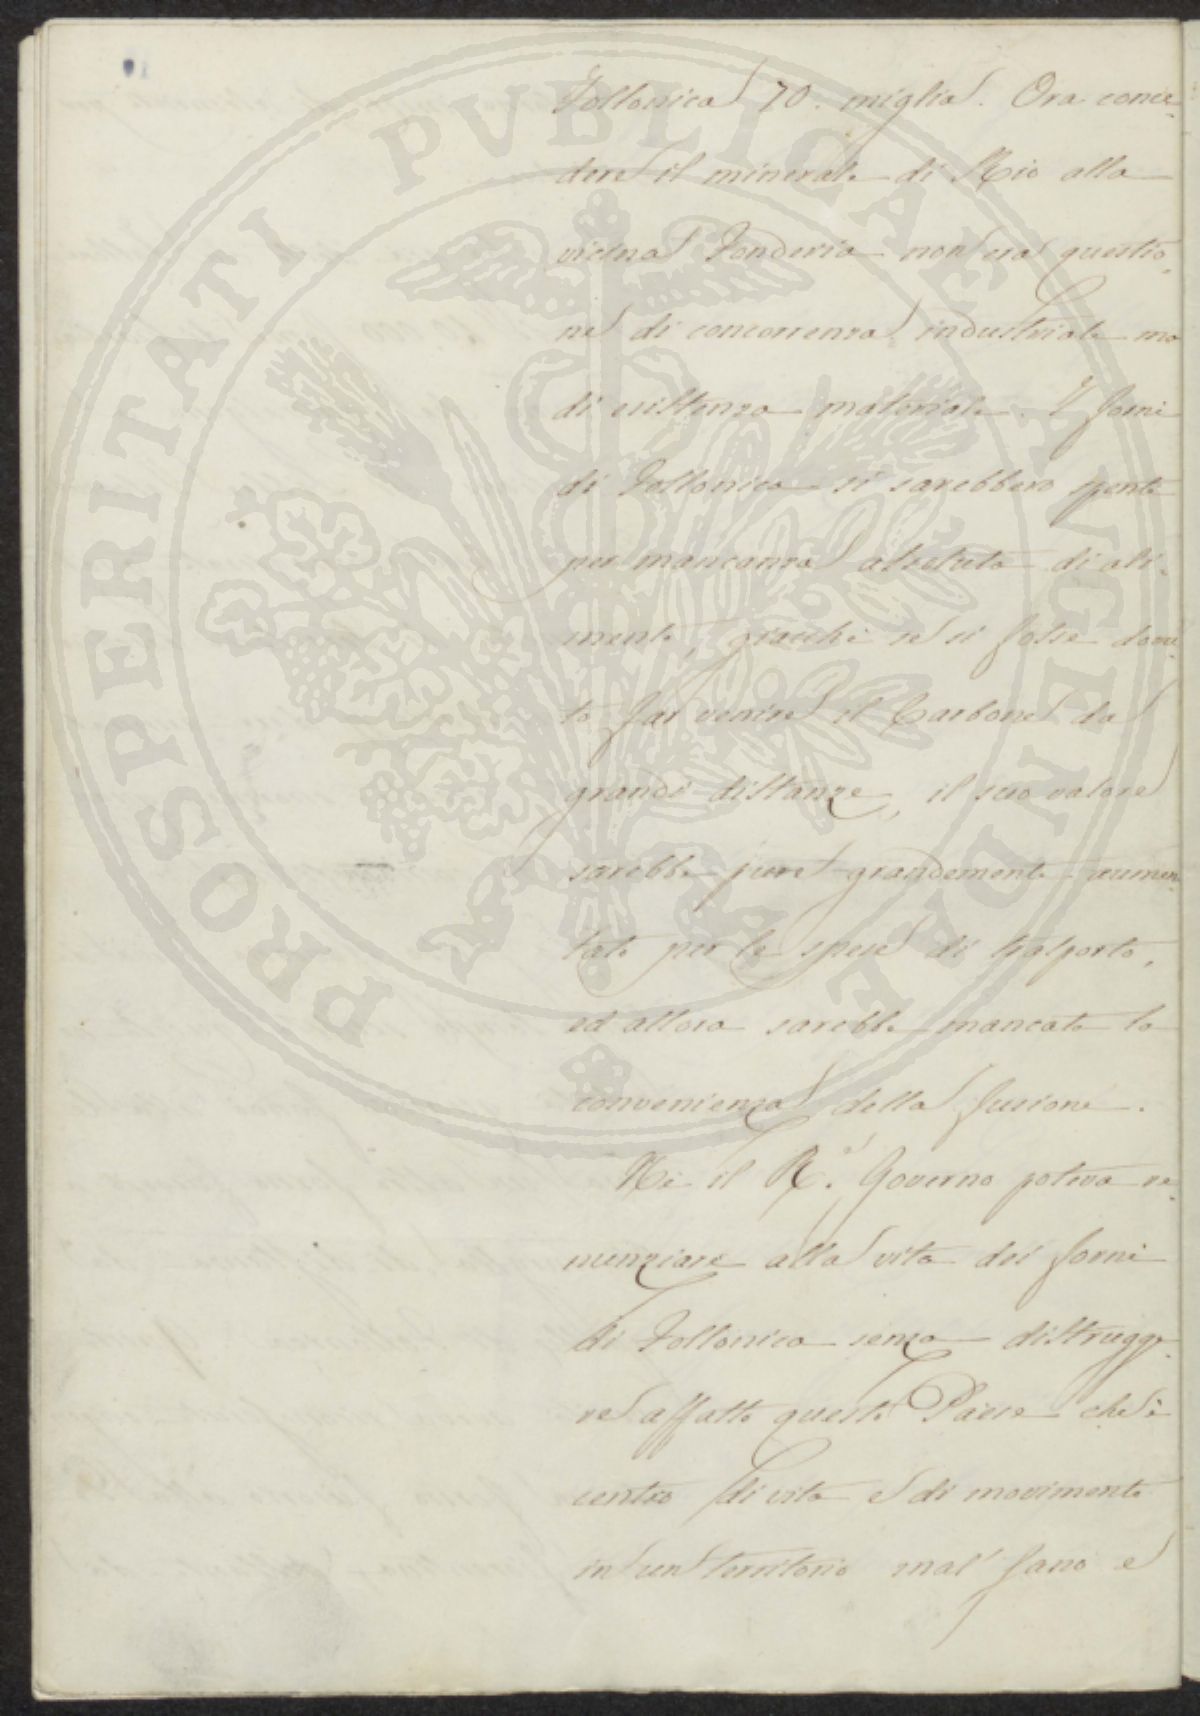 Follonica 70. miglia. Ora conce-
dere il minerale di Rio alla
vicina Fonderia non era questio-
ne di concorrenza industriale ma
di esistenza materiale. I forni
di Follonica si sarebbero spenti
per mancanza assoluta di ali-
mento, giacchè se si fosse dovu-
to far venire il Carbone da
grandi distanze, il suo valore
sarebbe pure grandemente aumen-
tato per le spese di trasporto,
ed allora sarebbe mancata la
convenienza della fusione.
Nè il R.º Governo poteva re-
nunziare alla vita dei forni
di Follonica senza distrugge-
re affatto questo Paese che è
centro di vita e di movimento
in un territorio mal sano e
PROSPERITATI PUBLICAE AVGENDAE